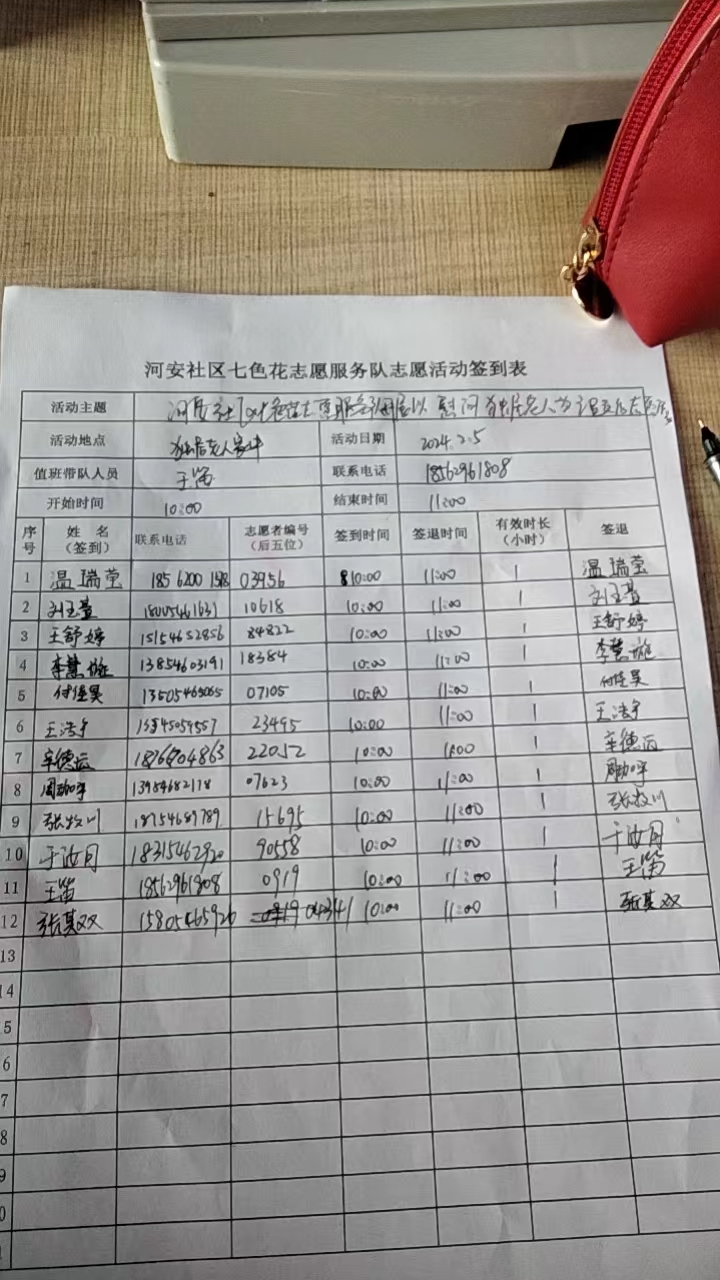 河安社区七色花志愿服务队志愿活动签到表
活动主题 河安社区七色花志愿服务队开展以 慰问独居老人为主题的志愿
活动地点 独居老人家中 活动日期 2024.2.5
值班带队人员 王笛 联系电话 18562961808
开始时间 10:00 结束时间 11:00
序号 姓名（签到） 联系电话 志愿者编号（后五位） 签到时间 签退时间 有效时长（小时） 签退
1 温瑞莹 03956 10:00 11:00 1 温瑞莹
2 18005461631 10618 10:00 11:00 1
3 王舒婷 15154652856 84822 10:00 11:00 1 王舒婷
4 李慧璇 13854603191 18384 10:00 11:00 1 李慧璇
5 13505465065 07105 10:00 11:00 1
6 王浩宇 23495 10:00 11:00 1 王浩宇
7 辛德运 22052 10:00 11:00 1 辛德运
8 13954682178 07623 10:00 11:00 1
9 张牧川 18754689789 15695 10:00 11:00 1 张牧川
10 于汝月 18315462920 90558 10:00 11:00 1 于汝月
11 王笛 18562961808 0919 10:00 11:00 1 王笛
12 张其双 15805465926 04341 10:00 11:00 1 张其双
13
14
5
6
7
8
9
0